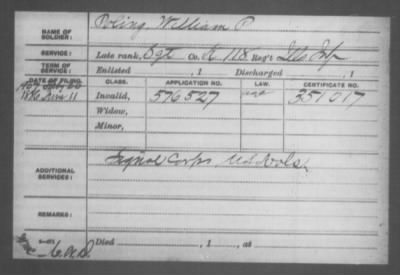 NAME OF SOLDIER: Poling, William P.
SERVICE: Late rank, Sgt Co. K, 118 Reg't Ills Inf
TERM OF SERVICE: Enlisted , 1 Discharged , 1
DATE OF FILING. CLASS. APPLICATION NO. LAW. CERTIFICATE NO.
Invalid, 576527 351017
Widow,
Minor,
ADDITIONAL SERVICES: Signal Corps, U.S. Vols.
REMARKS:
Died , 1 , at